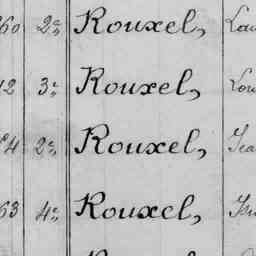 60 2º Rouxel, Lou
12 3º Rouxel, Lou
4 2º Rouxel, Jea
63 4º Rouxel,